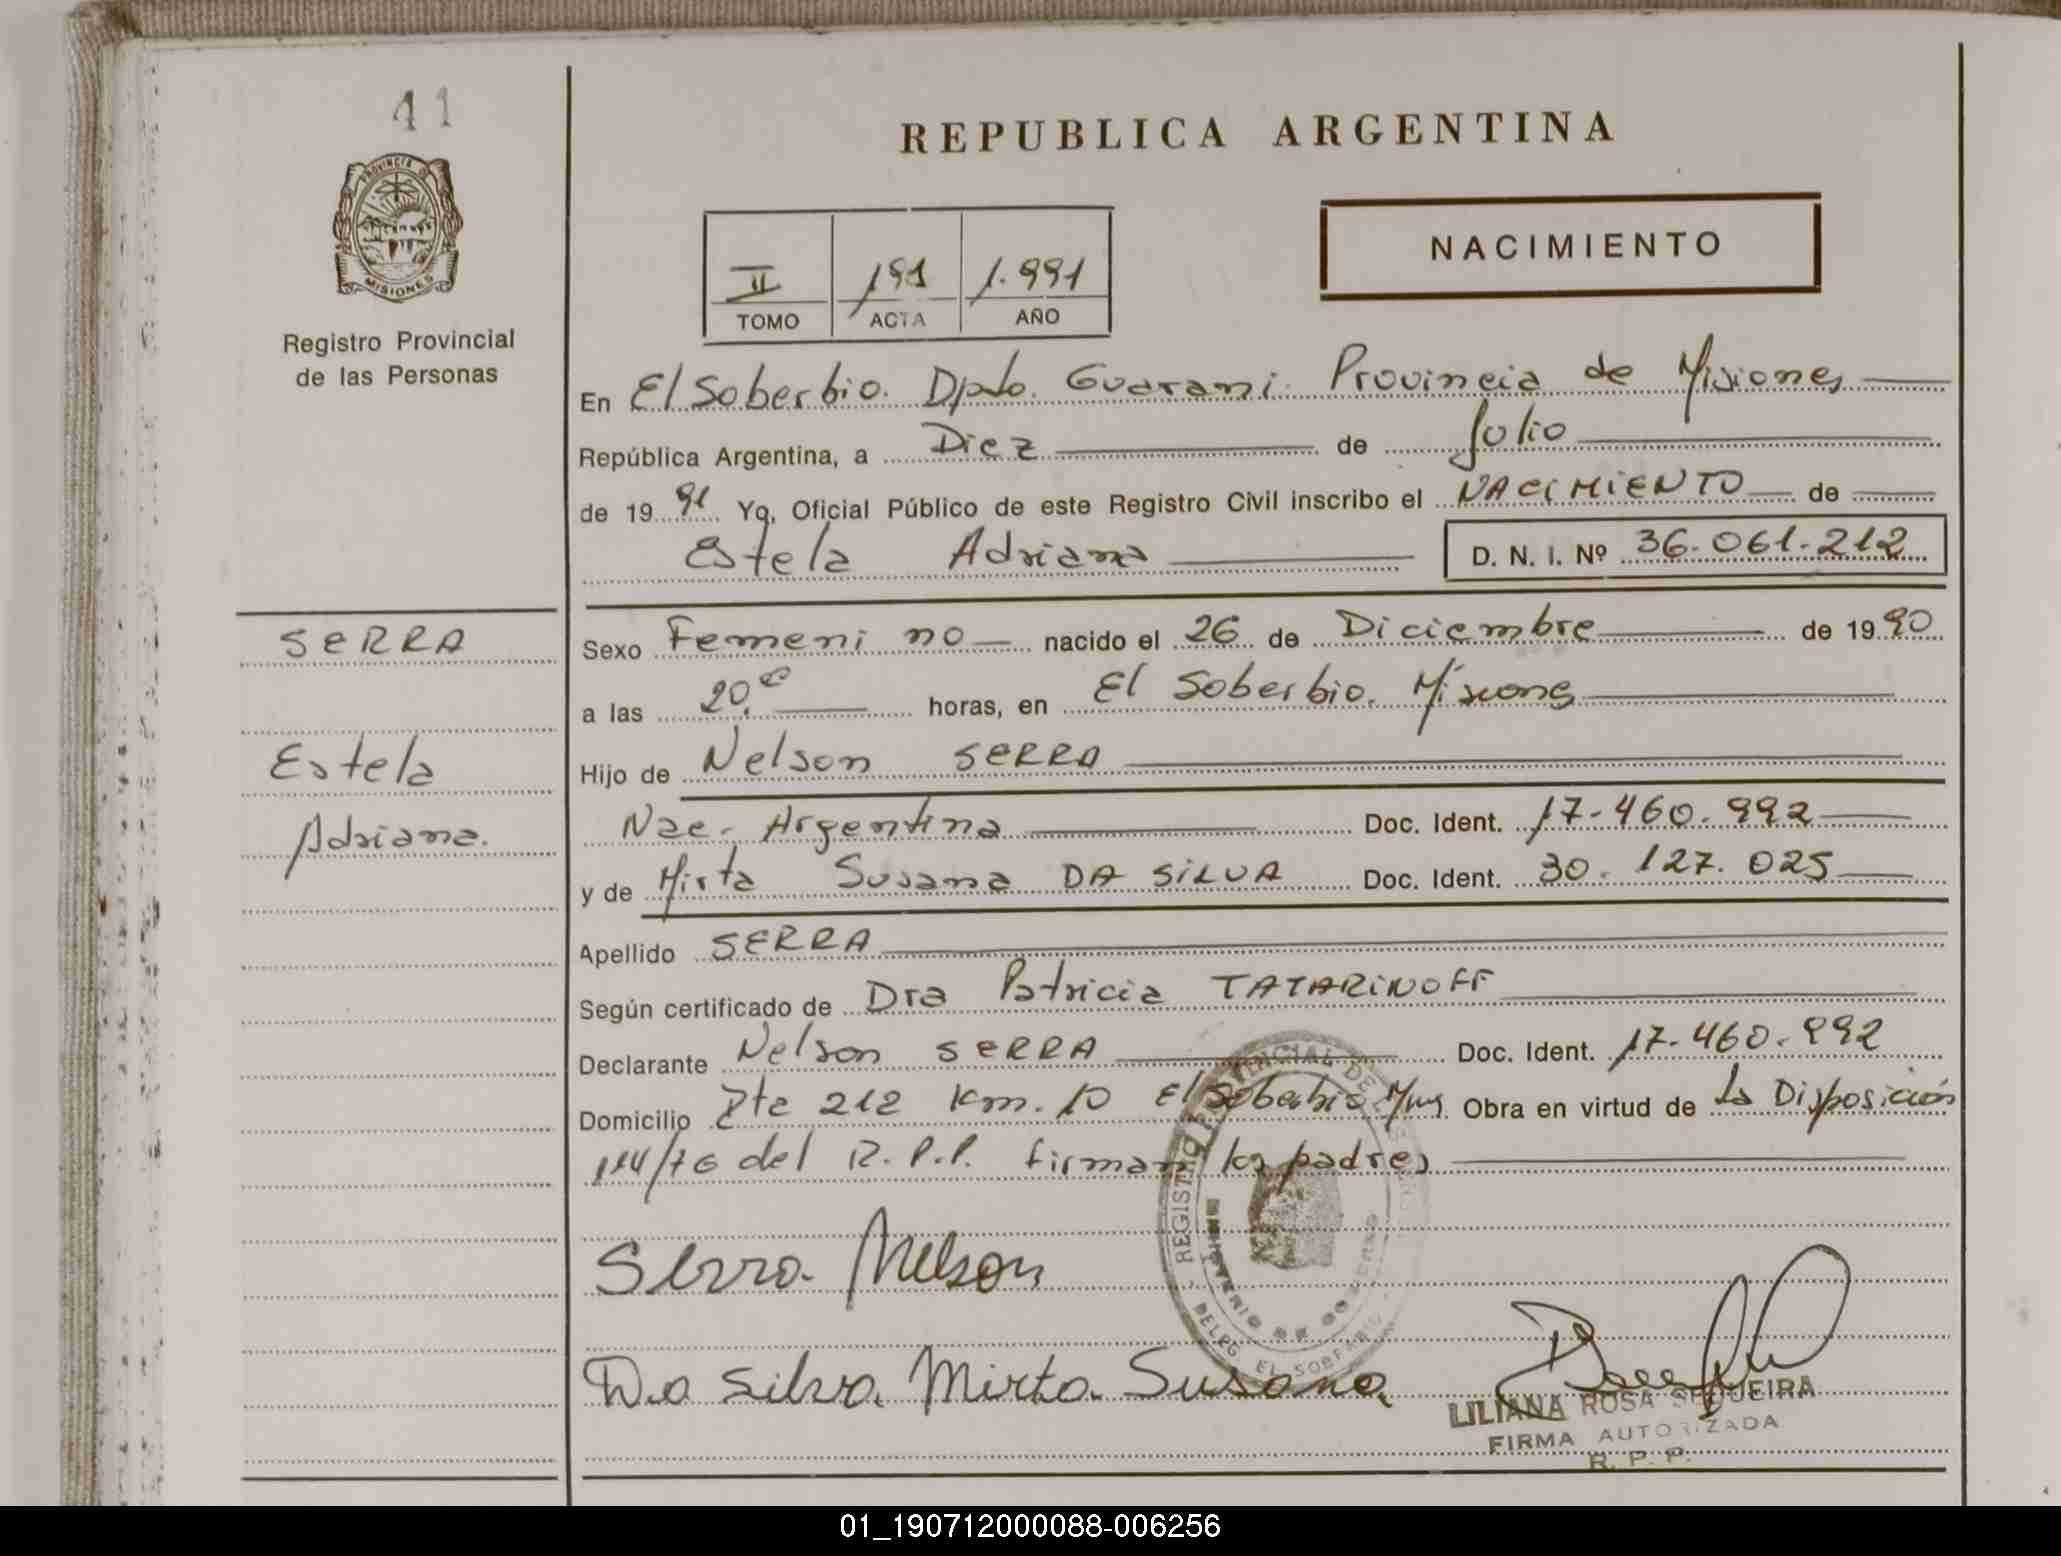 41
REPUBLICA ARGENTINA
PROVINCIA DE
MISIONES
Registro Provincial
de las Personas
II 191 1.991
TOMO ACTA AÑO
NACIMIENTO
En El Soberbio. Dpto. Guarani. Provincia de Misiones
República Argentina, a Diez de Julio
de 1991 Yo, Oficial Público de este Registro Civil inscribo el NACIMIENTO de
Estela Adriana D. N. I. Nº 36.061.212
SERRA
Estela
Adriana.
Sexo Femenino nacido el 26 de Diciembre de 1990
a las 20. horas, en El Soberbio. Misiones
Hijo de Nelson SERRA
Nac. Argentina Doc. Ident. 17.460.992
y de Mirta Susana DA SILVA Doc. Ident. 30.127.025
Apellido SERRA
Según certificado de Dra Patricia TATARINOFF
Declarante Nelson SERRA Doc. Ident. 17.460.992
Domicilio Rta 212 Km. 10 El Soberbio Obra en virtud de la Disposición
del R.P.P. firman los padres
Serra Nelson
Da Silva Mirta Susana
REGISTRO PROVINCIAL DE
MINISTERIO DE GOBIERNO
DELEG. EL SOBERBIO
LILIANA ROSA SEQUEIRA
FIRMA AUTORIZADA
R. P. P.
01_190712000088-006256